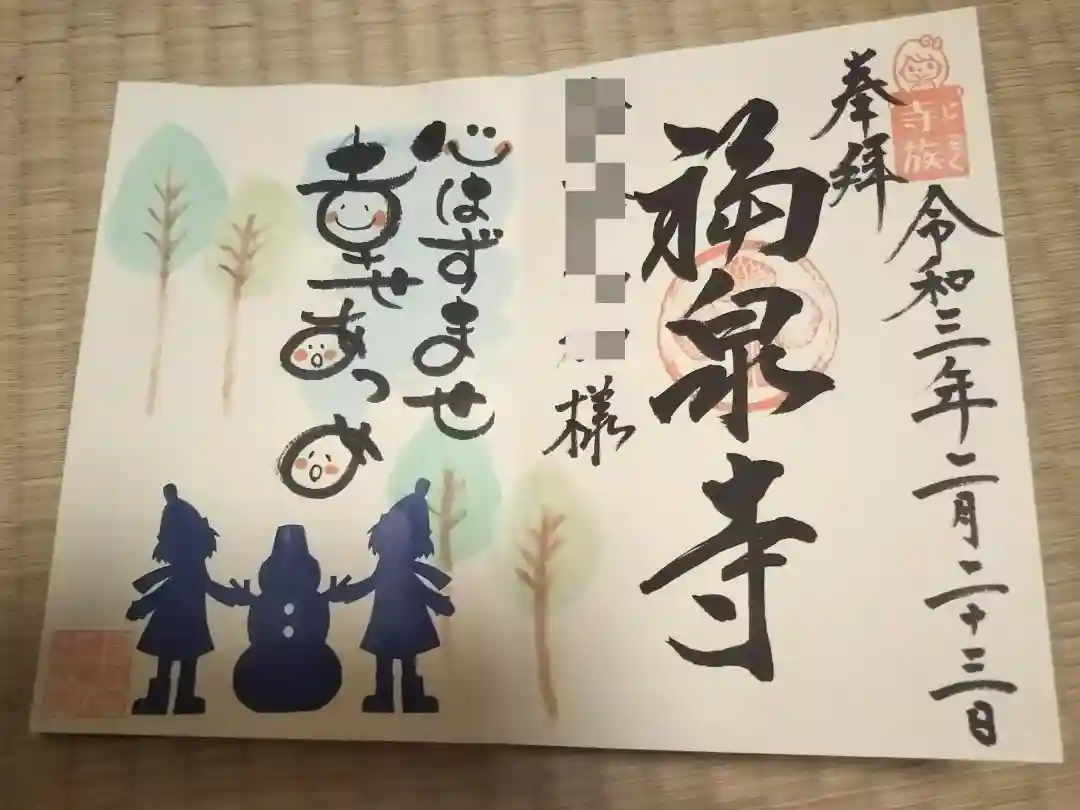 じぞく
寺族
奉拝
令和三年二月二十三日
福泉寺
様
心はずませ
幸せあつめ